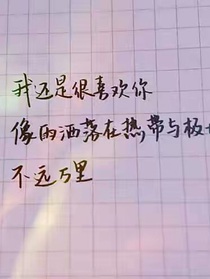 我还是很喜欢你
像雨洒落在热带与极
不远万里